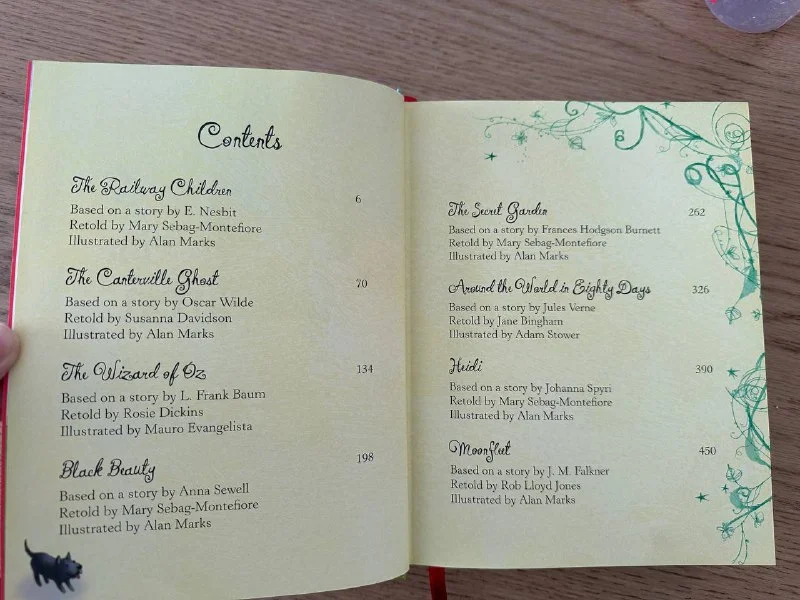 Contents
The Railway Children 6
Based on a story by E. Nesbit
Retold by Mary Sebag-Montefiore
Illustrated by Alan Marks
The Canterville Ghost 70
Based on a story by Oscar Wilde
Retold by Susanna Davidson
Illustrated by Alan Marks
The Wizard of Oz 134
Based on a story by L. Frank Baum
Retold by Rosie Dickins
Illustrated by Mauro Evangelista
Black Beauty 198
Based on a story by Anna Sewell
Retold by Mary Sebag-Montefiore
Illustrated by Alan Marks
The Secret Garden 262
Based on a story by Frances Hodgson Burnett
Retold by Mary Sebag-Montefiore
Illustrated by Alan Marks
Around the World in Eighty Days 326
Based on a story by Jules Verne
Retold by Jane Bingham
Illustrated by Adam Stower
Heidi 390
Based on a story by Johanna Spyri
Retold by Mary Sebag-Montefiore
Illustrated by Alan Marks
Moonfleet 450
Based on a story by J. M. Falkner
Retold by Rob Lloyd Jones
Illustrated by Alan Marks